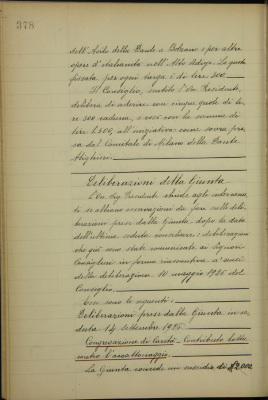 378
dell'Asilo della Dante a Bolzano e per altre
opere d'italianità nell'Alto Adige. La quota
fissata per ogni targa è di lire 300
Il Consiglio, sentito l'On. Presidente,
delibera di aderire con cinque quote di li-
re 300 caduna, e così con la somma di
lire 1.500, all'iniziativa come sovra pre-
sa dal Comitato di Milano della Dante
Alighieri.
Deliberazioni della Giunta
L'On. Sig. Presidente chiede agli intervenu-
ti se abbiano osservazioni da fare sulle delibe-
razioni prese dalla Giunta dopo la data
dell'ultima seduta consigliare: deliberazioni
che già sono state comunicate ai Signori
Consiglieri in forma riassuntiva a' sensi
della deliberazione 10 maggio 1925 del
Consiglio.
Esse sono le seguenti:
Deliberazioni prese dalla Giunta in se-
duta 14 Settembre 1925.
Congregazione di Carità - Contributo lotta
contro l'accattonaggio.
La Giunta concede un sussidio di £ 2.000